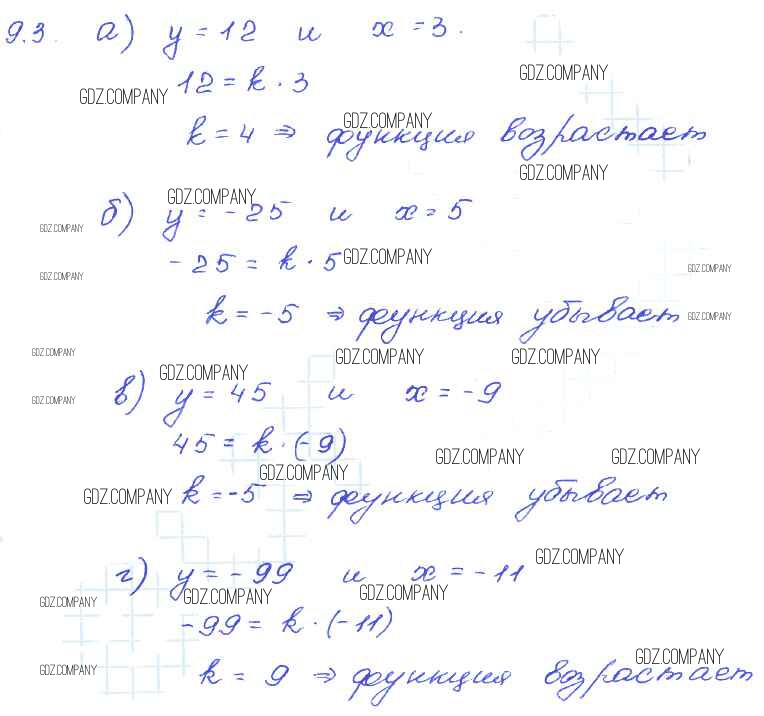 9.3. а) y = 12 и x = 3.
GDZ.COMPANY
12 = k · 3
GDZ.COMPANY
GDZ.COMPANY
k = 4 ⇒ функция возрастает
GDZ.COMPANY
GDZ.COMPANY
б) y = -25 и x = 5
GDZ.COMPANY
-25 = k · 5 GDZ.COMPANY
GDZ.COMPANY GDZ.COMPANY
k = -5 ⇒ функция убывает GDZ.COMPANY
GDZ.COMPANY GDZ.COMPANY GDZ.COMPANY
GDZ.COMPANY
в) y = 45 и x = -9
GDZ.COMPANY
45 = k · (-9)
GDZ.COMPANY GDZ.COMPANY
GDZ.COMPANY
GDZ.COMPANY k = -5 ⇒ функция убывает
GDZ.COMPANY
г) y = -99 и x = -11
GDZ.COMPANY GDZ.COMPANY GDZ.COMPANY
-99 = k · (-11)
GDZ.COMPANY
GDZ.COMPANY k = 9 ⇒ функция возрастает